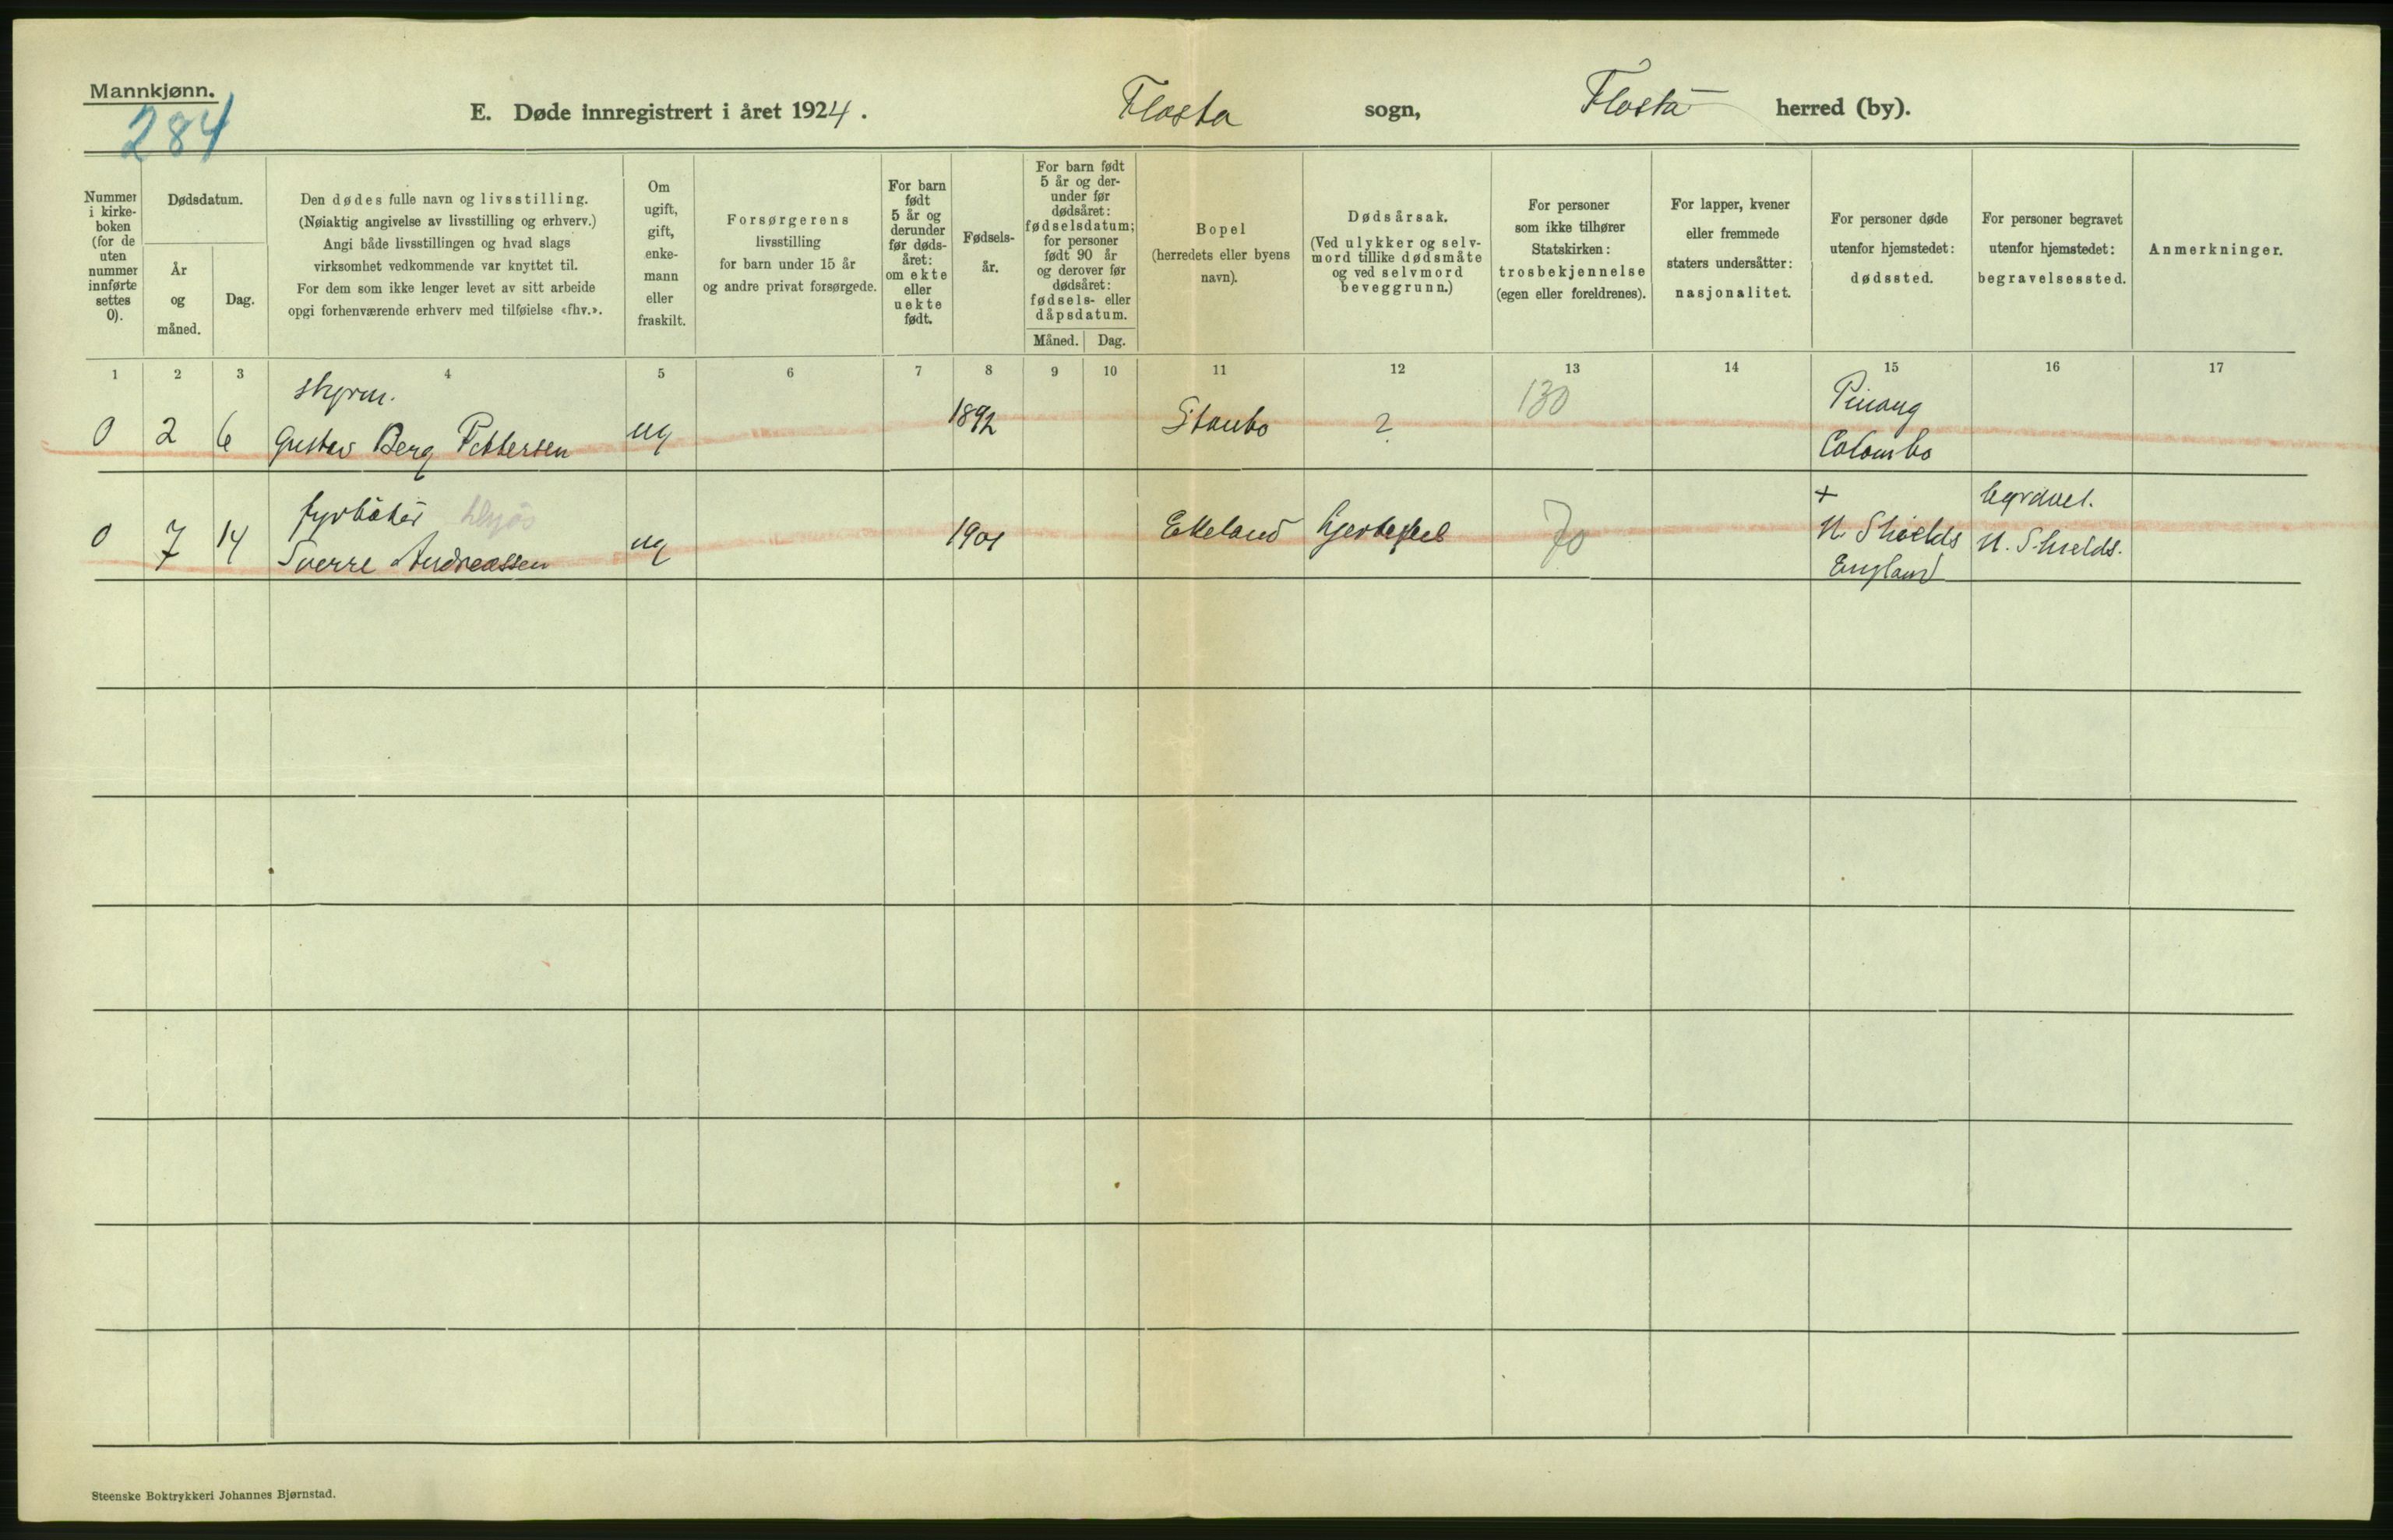 Mannkjønn.
284
E. Døde innregistrert i året 1924.
Flosta sogn, Flosta herred (by).
Nummer
i kirke-
boken
(for de
uten
nummer
innførte
settes
0).
Dødsdatum.
År
og
måned.
Dag.
Den dødes fulle navn og livsstilling.
(Nøiaktig angivelse av livsstilling og erhverv.)
Angi både livsstillingen og hvad slags
virksomhet vedkommende var knyttet til.
For dem som ikke lenger levet av sitt arbeide
opgi forhenværende erhverv med tilføielse «fhv.».
Om
ugift,
gift,
enke-
mann
eller
fraskilt.
Forsørgerens
livsstilling
for barn under 15 år
og andre privat forsørgede.
For barn
født
5 år og
derunder
før døds-
året:
om ekte
eller
uekte
født.
Fødsels-
år.
For barn født
5 år og der-
under før
dødsåret:
fødselsdatum;
for personer
født 90 år
og derover før
dødsåret:
fødsels- eller
dåpsdatum.
Måned. Dag.
Bopel
(herredets eller byens
navn).
Dødsårsak.
(Ved ulykker og selv-
mord tillike dødsmåte
og ved selvmord
beveggrunn.)
For personer
som ikke tilhører
Statskirken:
trosbekjennelse
(egen eller foreldrenes).
For lapper, kvener
eller fremmede
staters undersåtter:
nasjonalitet.
For personer døde
utenfor hjemstedet:
dødssted.
For personer begravet
utenfor hjemstedet:
begravelsessted.
Anmerkninger.
1 2 3 4 5 6 7 8 9 10 11 12 13 14 15 16 17
styrm.
0 2 6 Gustav Berg Pettersen ug 1892 Staubo ? 130 Pinang
Colombo
fyrbøter
0 7 14 Sverre Andreassen ug 1901 Eikeland hjertefeil 70 + N. Shields
England
begravet.
N. Shields.
Steenske Boktrykkeri Johannes Bjørnstad.